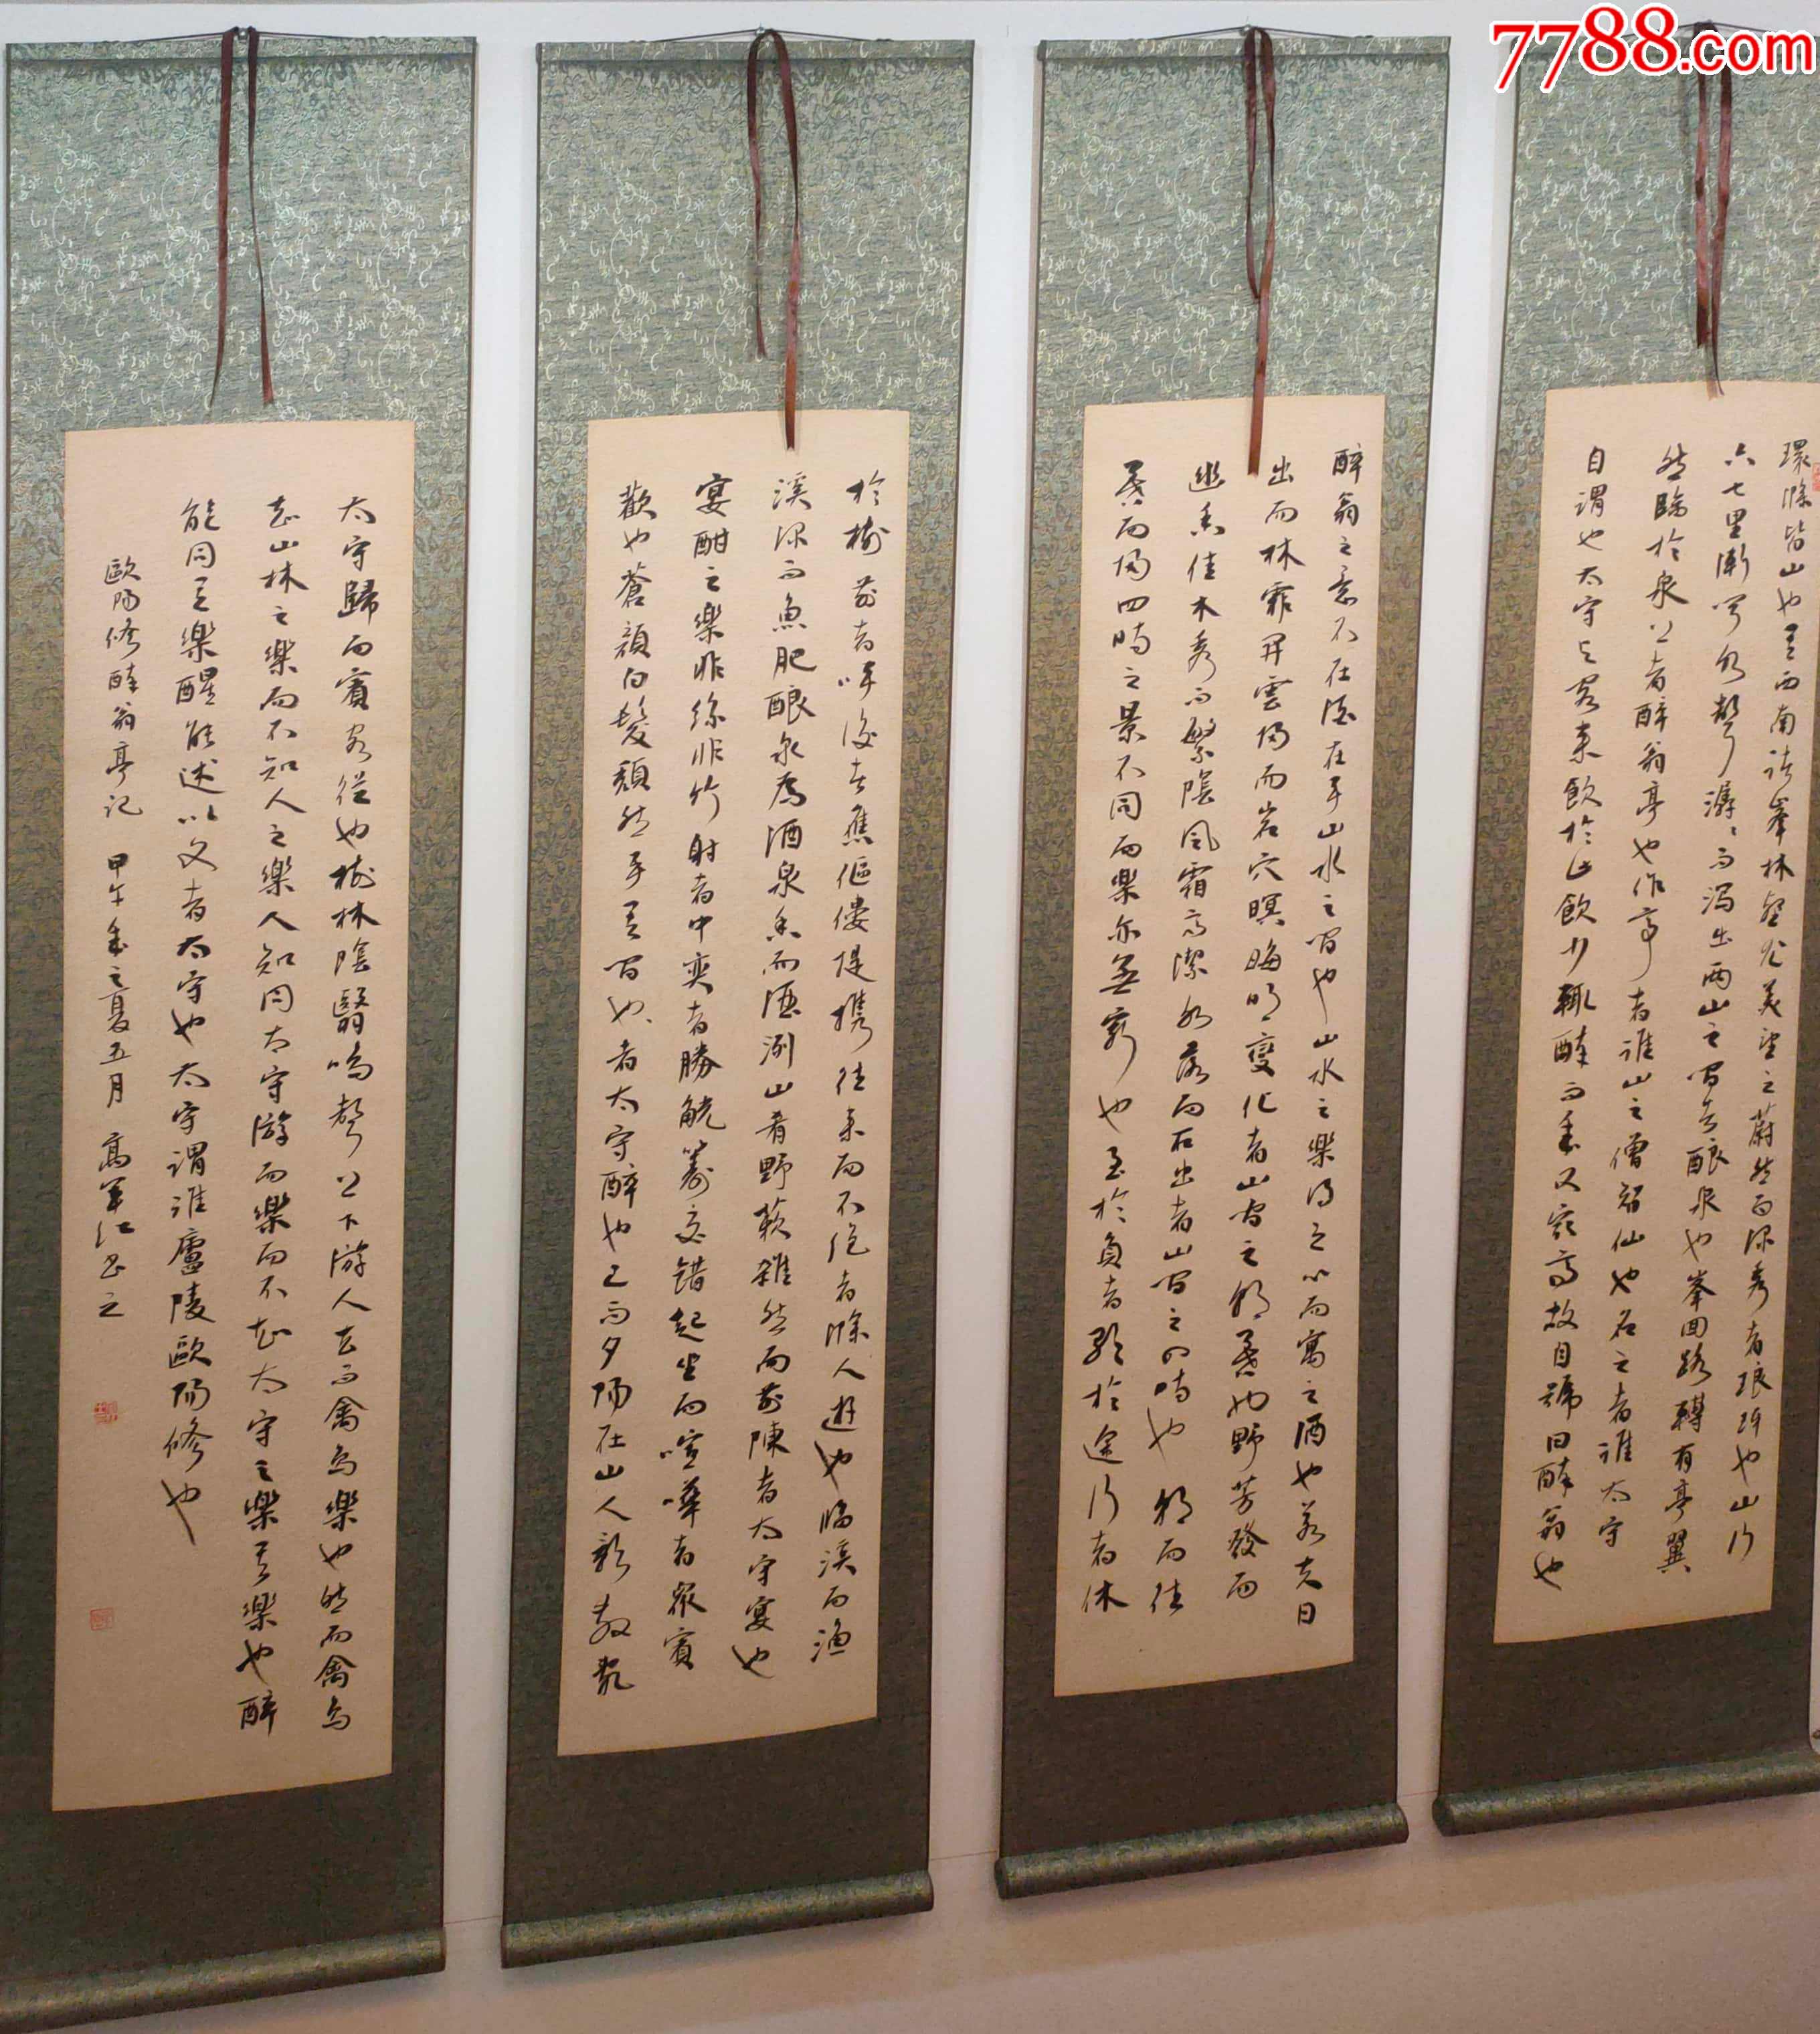 7788.com
環滁皆山也其西南諸峯林壑尤美望之蔚然而深秀者琅琊也山行
六七里漸聞水聲潺潺而瀉出兩山之間者釀泉也峯回路轉有亭翼
然臨於泉上者醉翁亭也作亭者誰山之僧智仙也名之者誰太守
自謂也太守與客來飲於此飲少輒醉而年又最高故自號曰醉翁也
醉翁之意不在酒在乎山水之間也山水之樂得之心而寓之酒也若夫日
出而林霏開雲歸而岩穴暝晦明變化者山間之朝暮也野芳發而
幽香佳木秀而繁陰風霜高潔水落而石出者山間之四時也朝而往
暮而歸四時之景不同而樂亦無窮也至於負者歌於途行者休
於樹前者呼後者應傴僂提携往來而不絕者滁人遊也臨溪而漁
溪深而魚肥釀泉為酒泉香而酒洌山肴野蔌雜然而前陳者太守宴也
宴酣之樂非絲非竹射者中奕者勝觥籌交錯起坐而喧嘩者衆賓
歡也蒼顏白髮頹然乎其間也者太守醉也已而夕陽在山人影散亂
太守歸而賓客從也樹林陰翳鳴聲上下游人去而禽鳥樂也然而禽鳥
知山林之樂而不知人之樂人知同太守游而樂而不知太守之樂其樂也醉
能同其樂醒能述以文者太守也太守謂誰廬陵歐陽修也
歐陽修醉翁亭記 甲午年之夏五月 高軍江書之